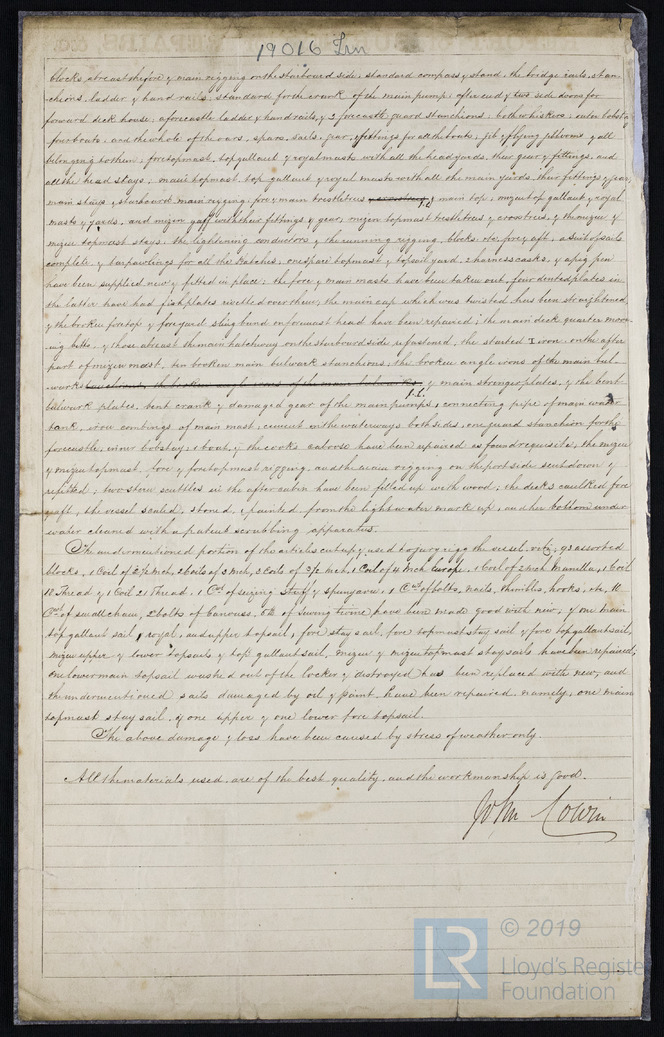 19016 Irn
blocks abreast the fore & main rigging on the starboard side; standard compass & stand; the bridge rails, stan-
chions, ladder & hand rails; standard for the crank of the main pump; after end & two side doors for
forward deck house; a forecastle ladder & hand rails, & 3 forecastle guard stanchions; both whiskers; outer bobstay
four boats, and the whole of the oars, spars, sails, gear, & fittings for all the boats; jib & flying jibbooms & all
belonging to them; foretopmast, topgallant & royal masts with all the headyards, their gear & fittings, and
all the head stays; main topmast, top gallant & royal masts with all the main yards, their fittings & gear,
main stays & starboard main rigging; fore & main trestletrees & main top; mizen top gallant & royal
masts & yards, and mizen gaff with their fittings & gear, mizen topmast trestletrees & crosstrees, & the mizen &
mizen topmast stays; the lightening conductors & the running rigging, blocks, etc, fore & aft; a suit of sails
complete & tarpawlings for all the hatches, one spare topmast & topsail yard, 2 harness casks, & a pig pen
have been supplied new & fitted in place; the fore & main masts have been taken out, four dented plates in
the latter have had fishplates rivetted over them; the main cap which was twisted has been straightened,
& the broken foretop & foreyard sling band on foremast head have been repaired; the main deck quarter moor-
ing bitts, & those abreast the main hatchway on the starboard side refastened; the started I iron, on the after
part of mizen mast, ten broken main bulwark stanchions, the broken angle irons of the main bul-
warks & main stronger plates, & the bent
bulwark plates, bent crank & damaged gear of the main pumps; connecting pipe of main water
tank, stove combings of main mast; cement in the waterways both sides, one guard stanchion for the
forecastle, inner bobstay, 1 boat, & the cooks caboose have been repaired as found requisite; the mizen
& mizen topmast, fore & foretopmast rigging, and the main rigging on the port side sent down &
refitted; two stern scuttles in the after cabin have been filled up with wood; the decks caulked fore
& aft, the vessel scaled, stoned, & painted from the light water mark up, and her bottom under
water cleaned with a patent scrubbing apparatus.
The undermentioned portion of the articles cut up & used to jury rig the vessel, viz; 93 assorted
blocks, 1 Coil of 2½ Inch, 2 Coils of 3 Inch, 3 Coils of 3½ Inch, 1 Coil of 4 Inch Europe, 1 Coil of 2 Inch Manilla, 1 Coil
18 Thread & 1 Coil 21 Thread, 1 Cwt of seizing Stuff & spunyarn, 1 Cwt of bolts, nails, thimbles, hooks, etc, 10
Cwt of small chain, 2 bolts of Canvass, 6 lb of Sewing twine have been made good with new; & one main
top gallant sail, 1 royal, and upper topsail, fore stay sail, fore topmast stay sail & fore topgallant sail,
mizen upper & lower topsails & top gallant sail, mizen & mizen topmast stay sails have been repaired;
one lower main topsail washed out of the locker & destroyed has been replaced with new, and
the undermentioned sails damaged by oil & paint have been repaired, namely, one main
topmast stay sail, & one upper & one lower fore topsail.
The above damage & loss have been caused by stress of weather only
All the materials used are of the best quality, and the workmanship is good.
John Cowin
LR
© 2019
Lloyd's Registe
Foundation